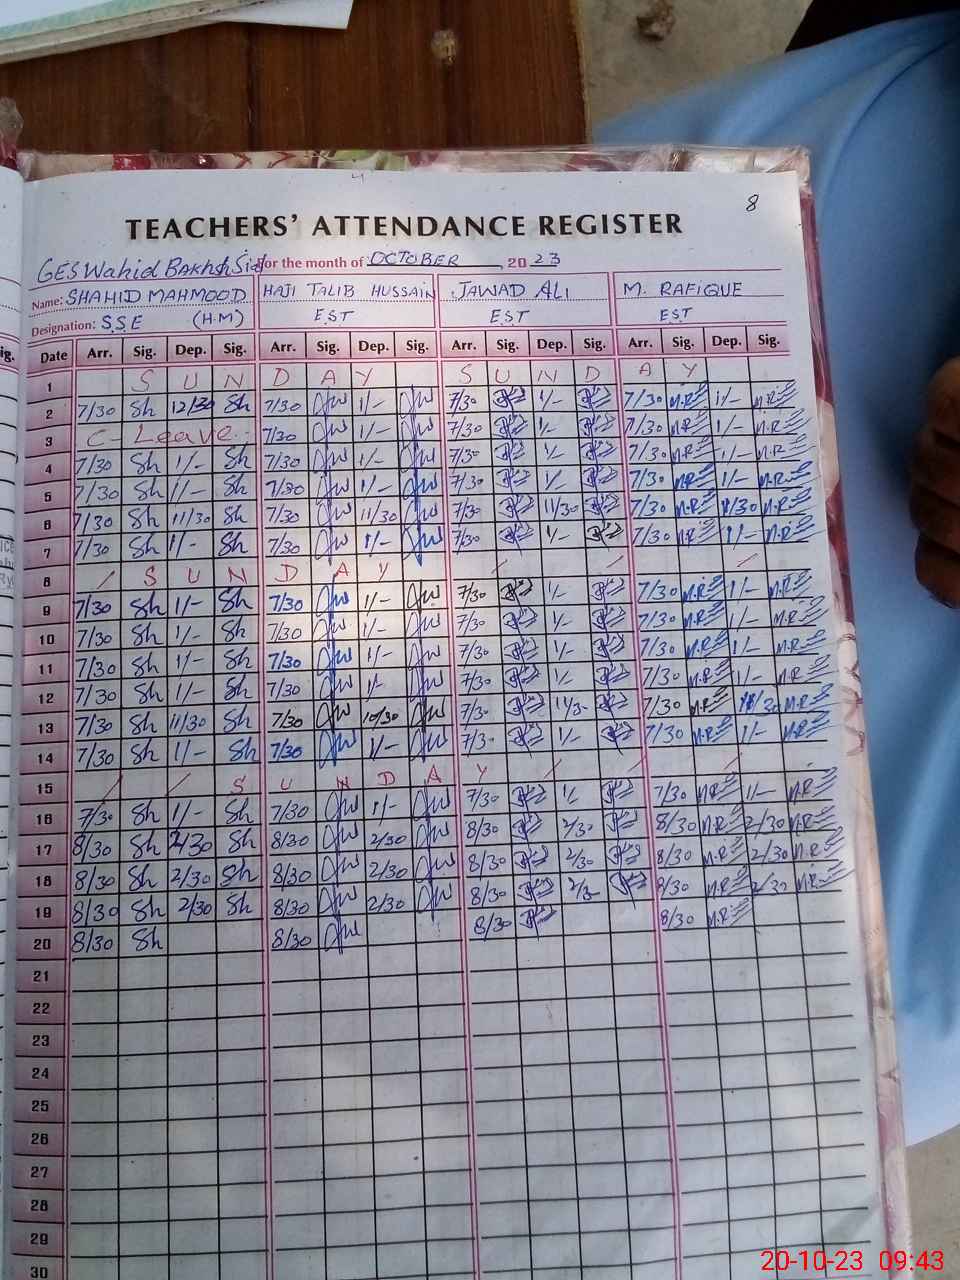 8
TEACHERS' ATTENDANCE REGISTER
GES Wahid Bakhsh for the month of OCTOBER 2023
Name: SHAHID MAHMOOD HAJI TALIB HUSSAIN JAWAD ALI M. RAFIQUE
Designation: S.S.E (H.M) E.S.T E.S.T E.S.T
Date Arr. Sig. Dep. Sig. Arr. Sig. Dep. Sig. Arr. Sig. Dep. Sig. Arr. Sig. Dep. Sig.
1 S U N D A Y S U N D A Y
2 7/30 Sh 12/30 Sh 7/30 1/- 7/30 1/- 7/30 M.R 1/- M.R
3 C-Leave 7/30 1/- 7/30 1/- 7/30 M.R 1/- M.R
4 7/30 Sh 1/- Sh 7/30 1/- 7/30 1/- 7/30 M.R 1/- M.R
5 7/30 Sh 1/- Sh 7/30 1/- 7/30 1/- 7/30 M.R 1/- M.R
6 7/30 Sh 11/30 Sh 7/30 11/30 7/30 11/30 7/30 M.R 11/30 M.R
7 7/30 Sh 1/- Sh 7/30 1/- 7/30 1/- 7/30 M.R 1/- M.R
8 S U N D A Y
9 7/30 Sh 1/- Sh 7/30 1/- 7/30 1/- 7/30 M.R 1/- M.R
10 7/30 Sh 1/- Sh 7/30 1/- 7/30 1/- 7/30 M.R 1/- M.R
11 7/30 Sh 1/- Sh 7/30 1/- 7/30 1/- 7/30 M.R 1/- M.R
12 7/30 Sh 1/- Sh 7/30 1/- 7/30 1/- 7/30 M.R 1/- M.R
13 7/30 Sh 11/30 Sh 7/30 10/30 7/30 7/30 M.R M.R
14 7/30 Sh 1/- Sh 7/30 1/- 7/30 1/- 7/30 M.R 1/- M.R
15 S U N D A Y
16 7/30 Sh 1/- Sh 7/30 1/- 7/30 1/- 7/30 M.R 1/- M.R
17 8/30 Sh 2/30 Sh 8/30 2/30 8/30 2/30 8/30 M.R 2/30 M.R
18 8/30 Sh 2/30 Sh 8/30 2/30 8/30 2/30 8/30 M.R 2/30 M.R
19 8/30 Sh 2/30 Sh 8/30 2/30 8/30 2/30 8/30 M.R 2/30 M.R
20 8/30 Sh 8/30 8/30 8/30 M.R
21
22
23
24
25
26
27
28
29
30
20-10-23 09:43